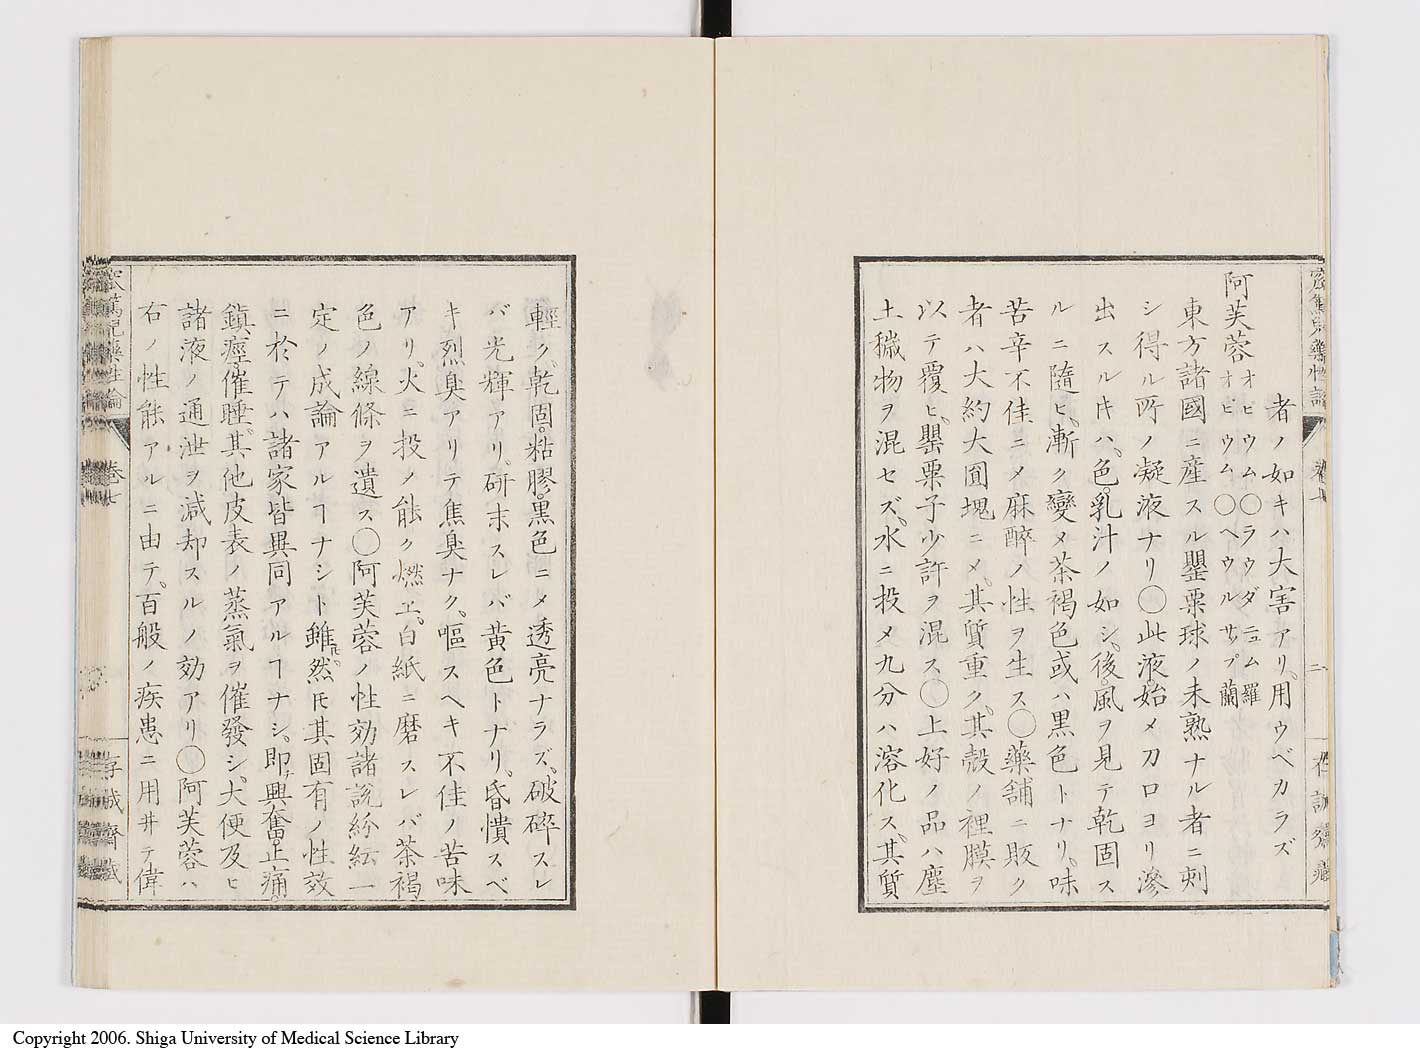 者ノ如キハ大害アリ。用ウベカラズ
阿芙蓉 オピウム〇ラウダニュム羅
オピウム〇ヘウルサプ蘭
東方諸國ニ産スル罌粟球ノ未熟ナル者ニ刺
シ得ル所ノ凝液ナリ〇此液。始メ刀口ヨリ滲
出スルㇳキハ、色。乳汁ノ如シ。後。風ヲ見テ乾固ス
ルニ隨ヒ、漸ク變メ茶褐色或ハ黒色トナリ。味
苦辛不佳ニメ麻醉ノ性ヲ生ス〇藥舗ニ販ク
者ハ大約大圓塊ニメ。其質重ク。其殻ノ裡膜ヲ
以テ覆ヒ。罌粟子少許ヲ混ス〇上好ノ品ハ塵
土穢物ヲ混セズ。水ニ投メ九分ハ溶化ス。其質
輕ク。乾固。粘膠。黒色ニメ透亮ナラズ。破碎スレ
バ光輝アリ。研末スレバ黄色トナリ。昏憒スベ
キ烈臭アリテ焦臭ナク。嘔スヘキ不佳ノ苦味
アリ。火ニ投メ能ク燃エ。白紙ニ磨スレバ茶褐
色ノ線條ヲ遺ス〇阿芙蓉ノ性効諸説紛紜一
定ノ成論アルヿナシト雖𪜈。然𪜈其固有ノ性效
ニ於テハ諸家皆異同アルヿナシ。即チ興奮。止痛。
鎮痙。催睡。其他皮表ノ蒸氣ヲ催發シ。大便及ヒ
諸液ノ通泄ヲ減却スルノ効アリ〇阿芙蓉ハ
右ノ性能アルニ由テ。百般ノ疾患ニ用井テ偉
窊篤兒藥性論
卷七
存誠齋蔵
Copyright 2006. Shiga University of Medical Science Library